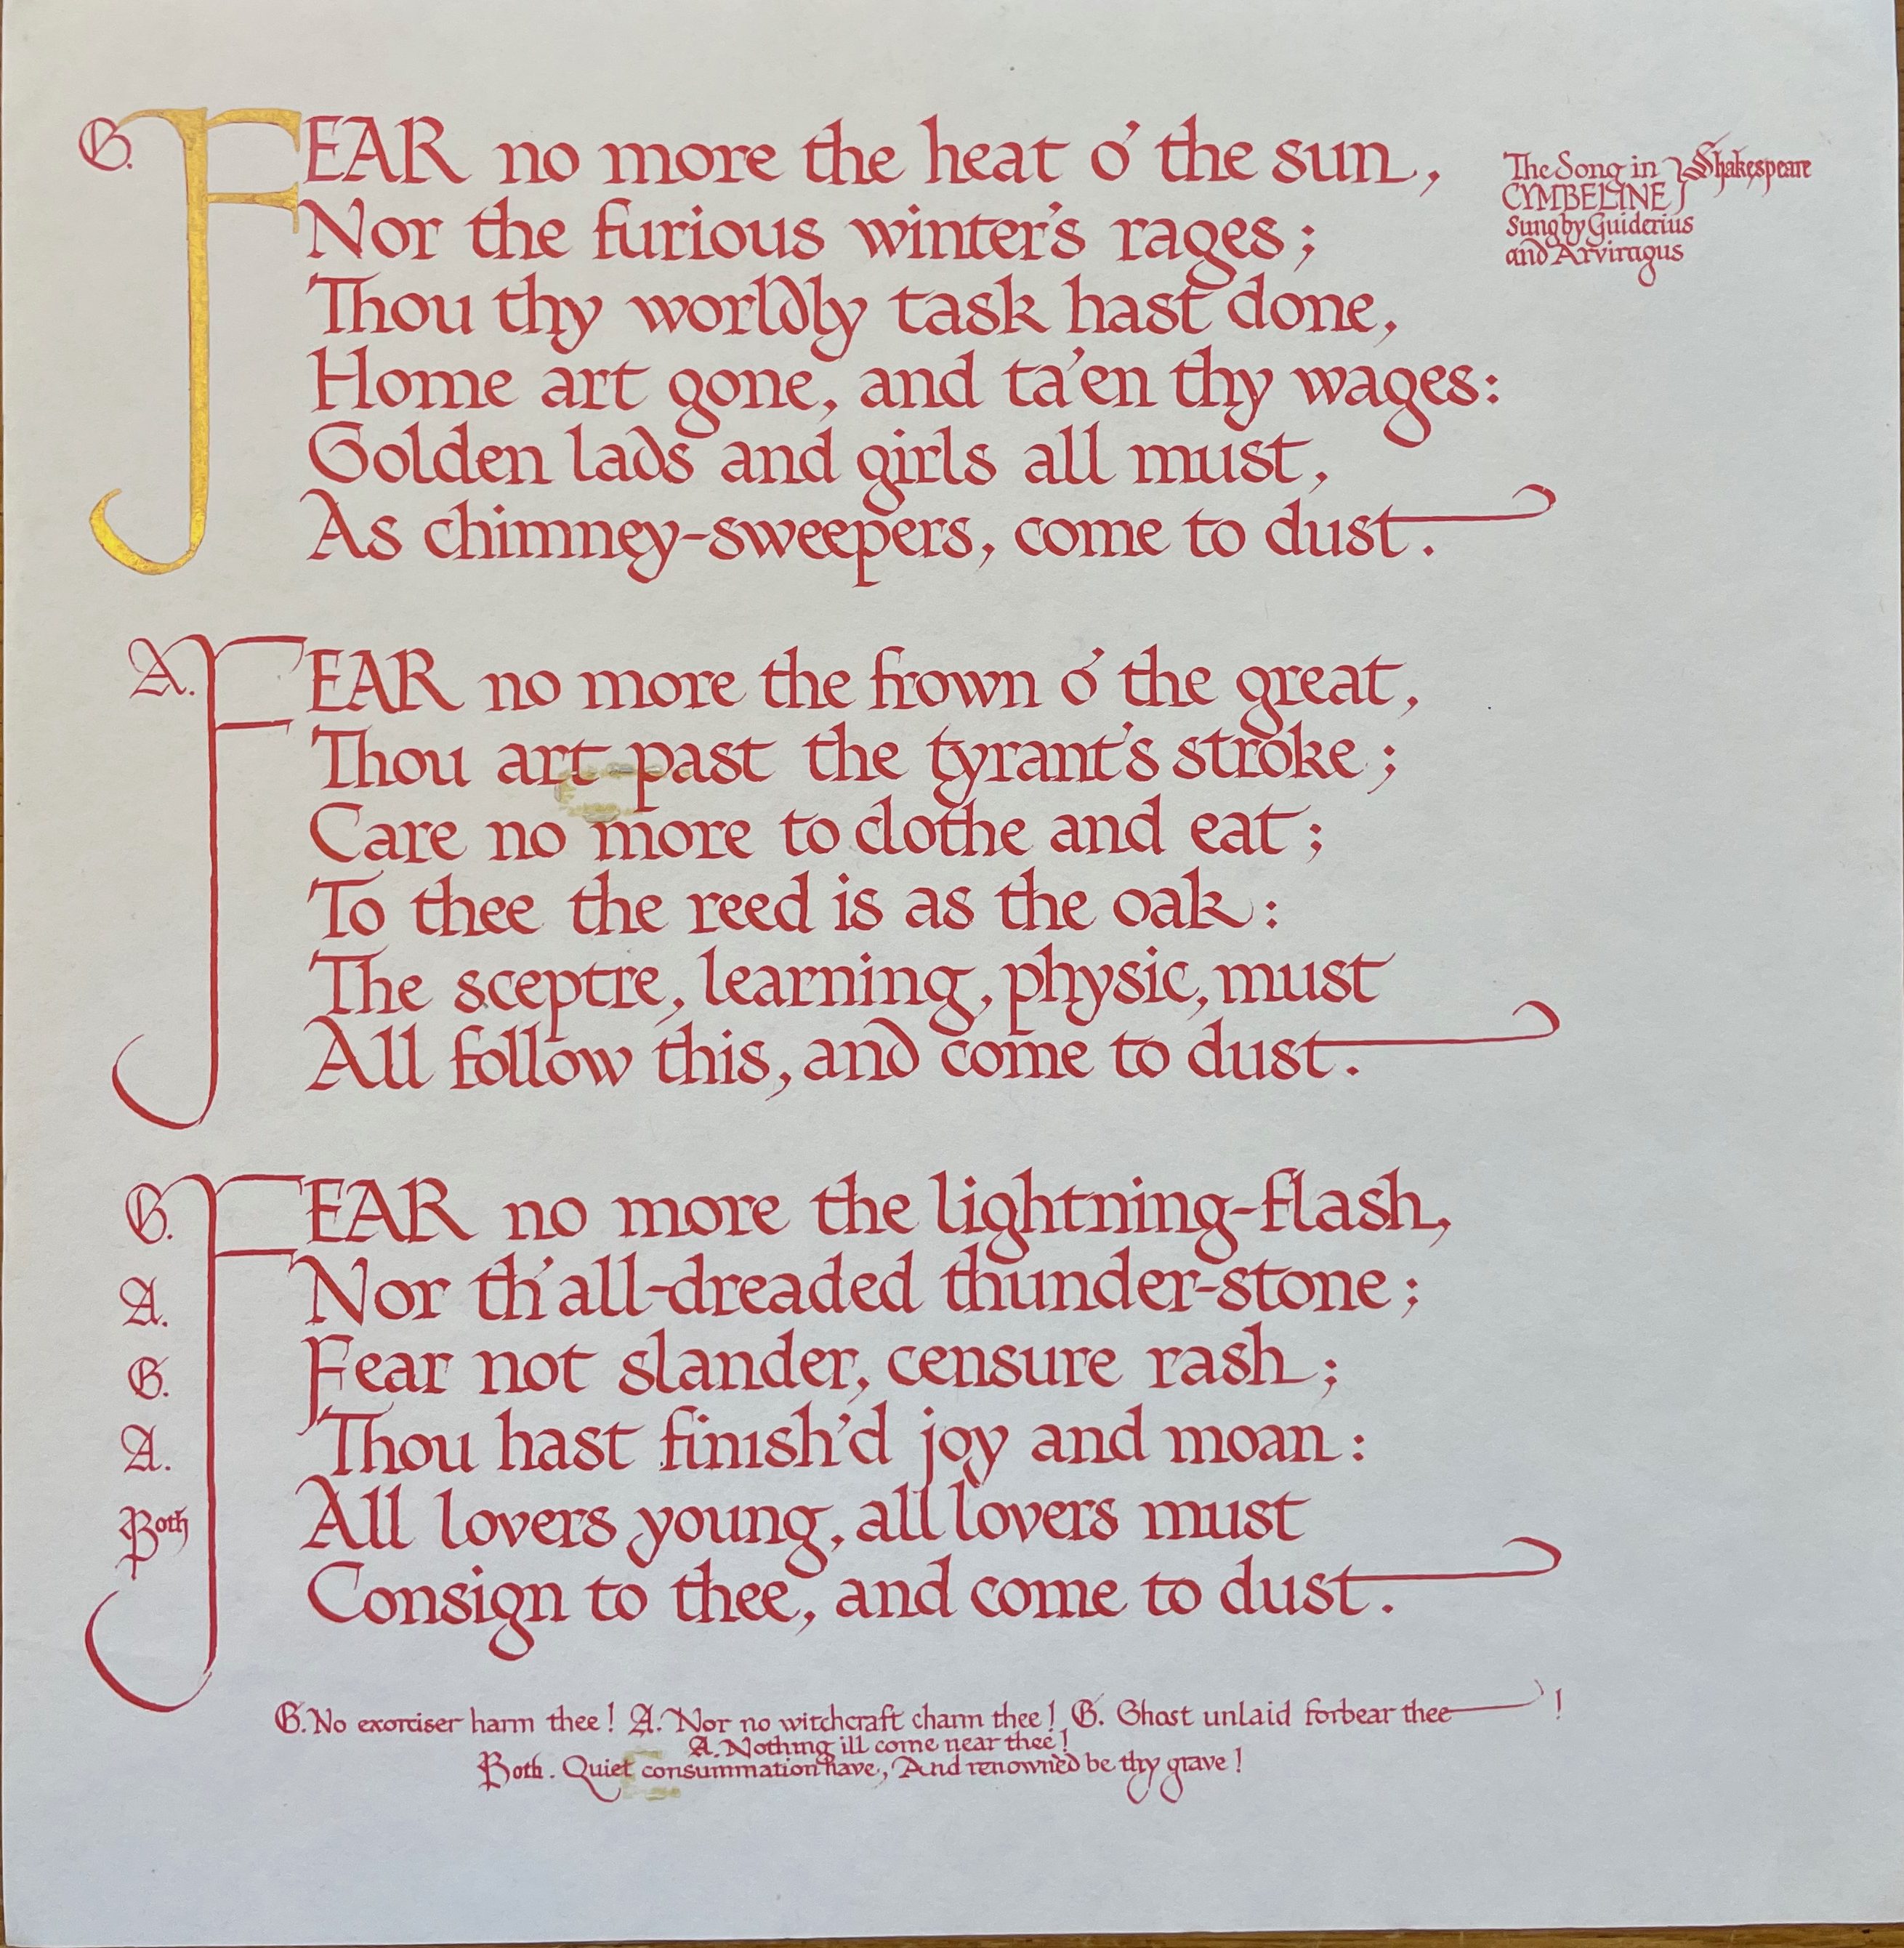 G. FEAR no more the heat o' the sun,
Nor the furious winter's rages;
Thou thy worldly task hast done,
Home art gone, and ta'en thy wages:
Golden lads and girls all must,
As chimney-sweepers, come to dust.
The Song in
CYMBELINE } Shakespeare
Sung by Guiderius
and Arviragus
A. FEAR no more the frown o' the great,
Thou art past the tyrant's stroke;
Care no more to clothe and eat;
To thee the reed is as the oak:
The sceptre, learning, physic, must
All follow this, and come to dust.
G. FEAR no more the lightning-flash,
A. Nor th'all-dreaded thunder-stone;
G. Fear not slander, censure rash;
A. Thou hast finish'd joy and moan:
Both All lovers young, all lovers must
Consign to thee, and come to dust.
G. No exorciser harm thee! A. Nor no witchcraft charm thee! G. Ghost unlaid forbear thee!
A. Nothing ill come near thee!
Both. Quiet consummation have, And renownèd be thy grave!